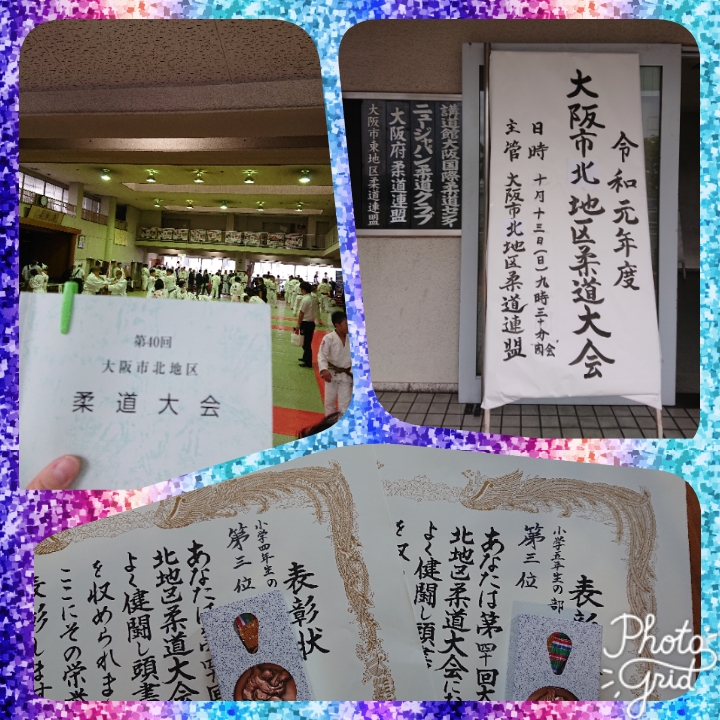 第40回
大阪市北地区
柔道大会
講道館大阪国際柔道センター
ニュージャパン柔道クラブ
大阪府柔道連盟
大阪市東地区柔道連盟
令和元年度
大阪市北地区柔道大会
日時 十月十三日(日)九時三十分開会
主管 大阪市北地区柔道連盟
表彰状
小学四年生の
第三位
あなたは第四十回
北地区柔道大会
よく健闘し頭書
を収められま
ここにその栄誉
表彰します
表彰
小学五年生の部
第三位
あなたは第四十回大
北地区柔道大会に
よく健闘し頭書
を収
Photo
Grid